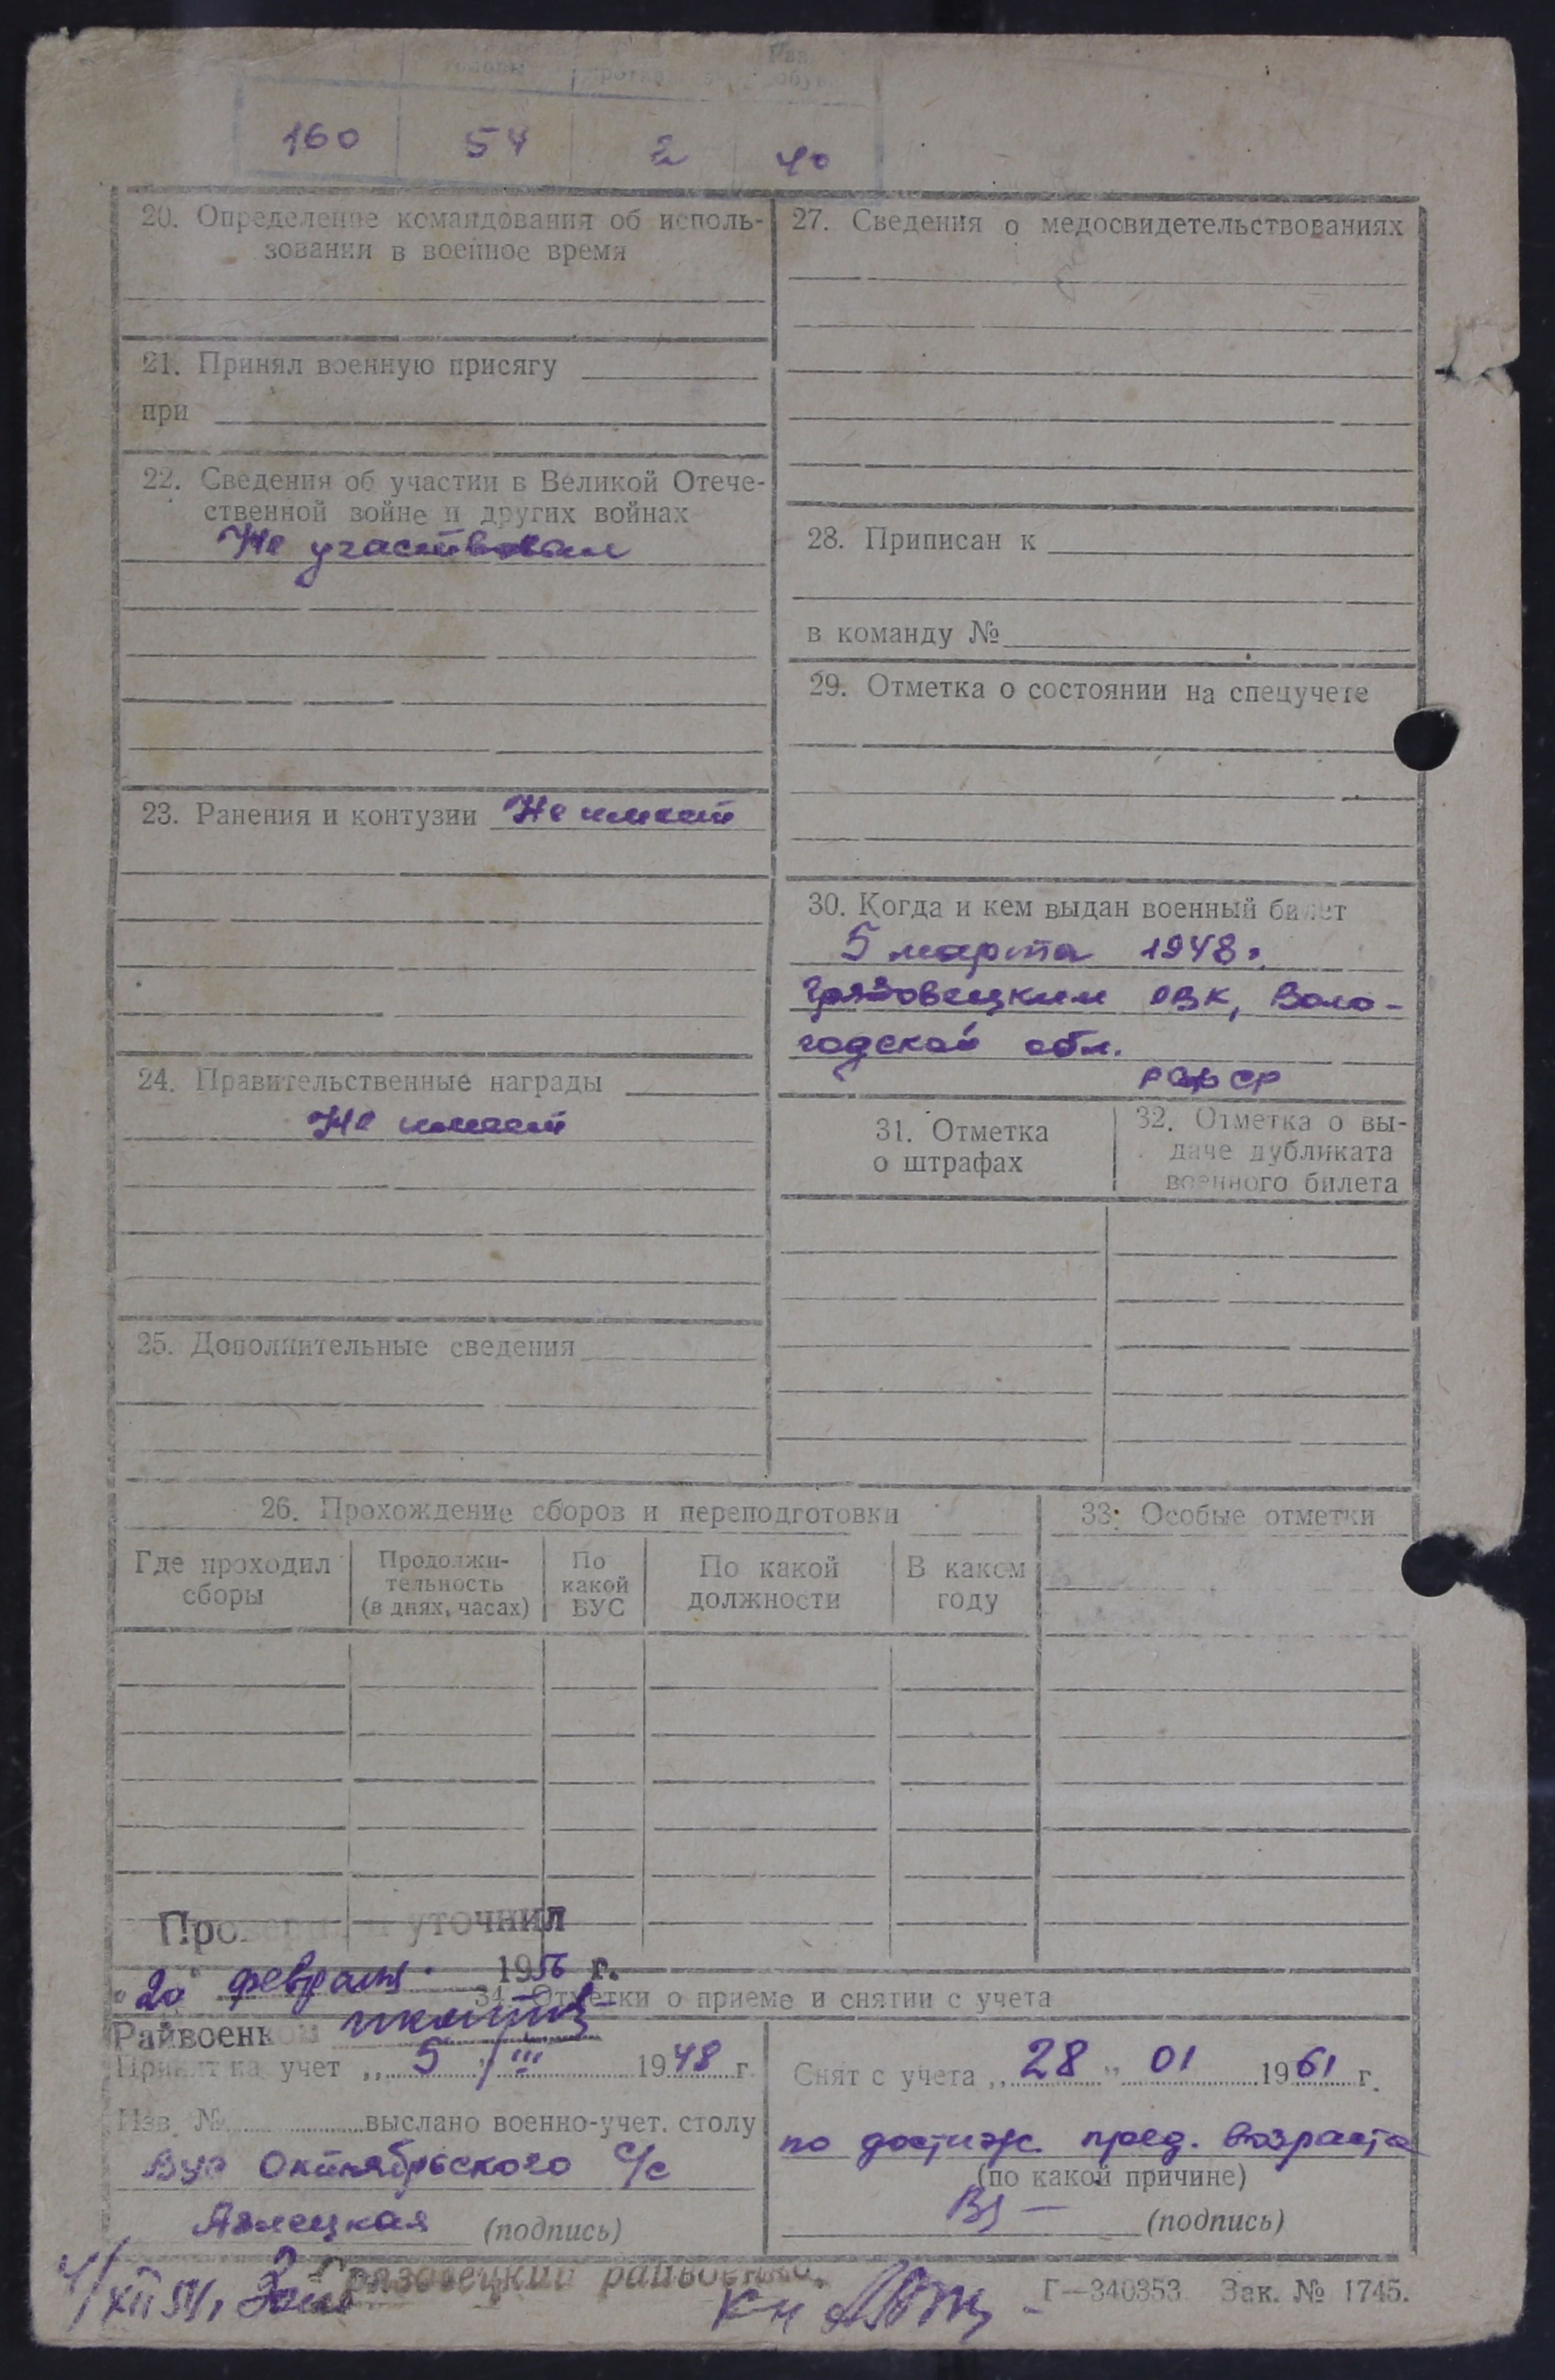 160 54 2 40
20. Определение командования об исполь-
зовании в военное время
21. Принял военную присягу
при
22. Сведения об участии в Великой Отече-
ственной войне и других войнах
Не участвовал
23. Ранения и контузии Не имеет
24. Правительственные награды
Не имеет
25. Дополнительные сведения
27. Сведения о медосвидетельствованиях
28. Приписан к
в команду №
29. Отметка о состоянии на спецучете
30. Когда и кем выдан военный билет
5 марта 1948г.
Грязовецким РВК, Воло-
годской обл.
РСФСР
31. Отметка
о штрафах
32. Отметка о вы-
даче дубликата
военного билета
26. Прохождение сборов и переподготовки
Где проходил
сборы
Продолжи-
тельность
(в днях, часах)
По
какой
ВУС
По какой
должности
В каком
году
33. Особые отметки
Проверил и уточнил
"20" февраля 1956 г.
Райвоенком
34. Отметки о приеме и снятии с учета
Принят на учет „ 5 " III 1948 г.
Изв. № выслано военно-учет. столу
ВУС Октябрьского с/с
(подпись)
Снят с учета „ 28 " 01 1961 г.
по достиж. пред. возраста
(по какой причине)
(подпись)
Грязовецкий райвоенком
Г—340353 Зак. № 1745.